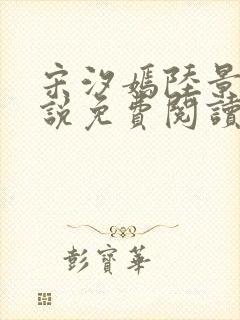 宋汐媽陸景
說免費閱讀
彭寶華